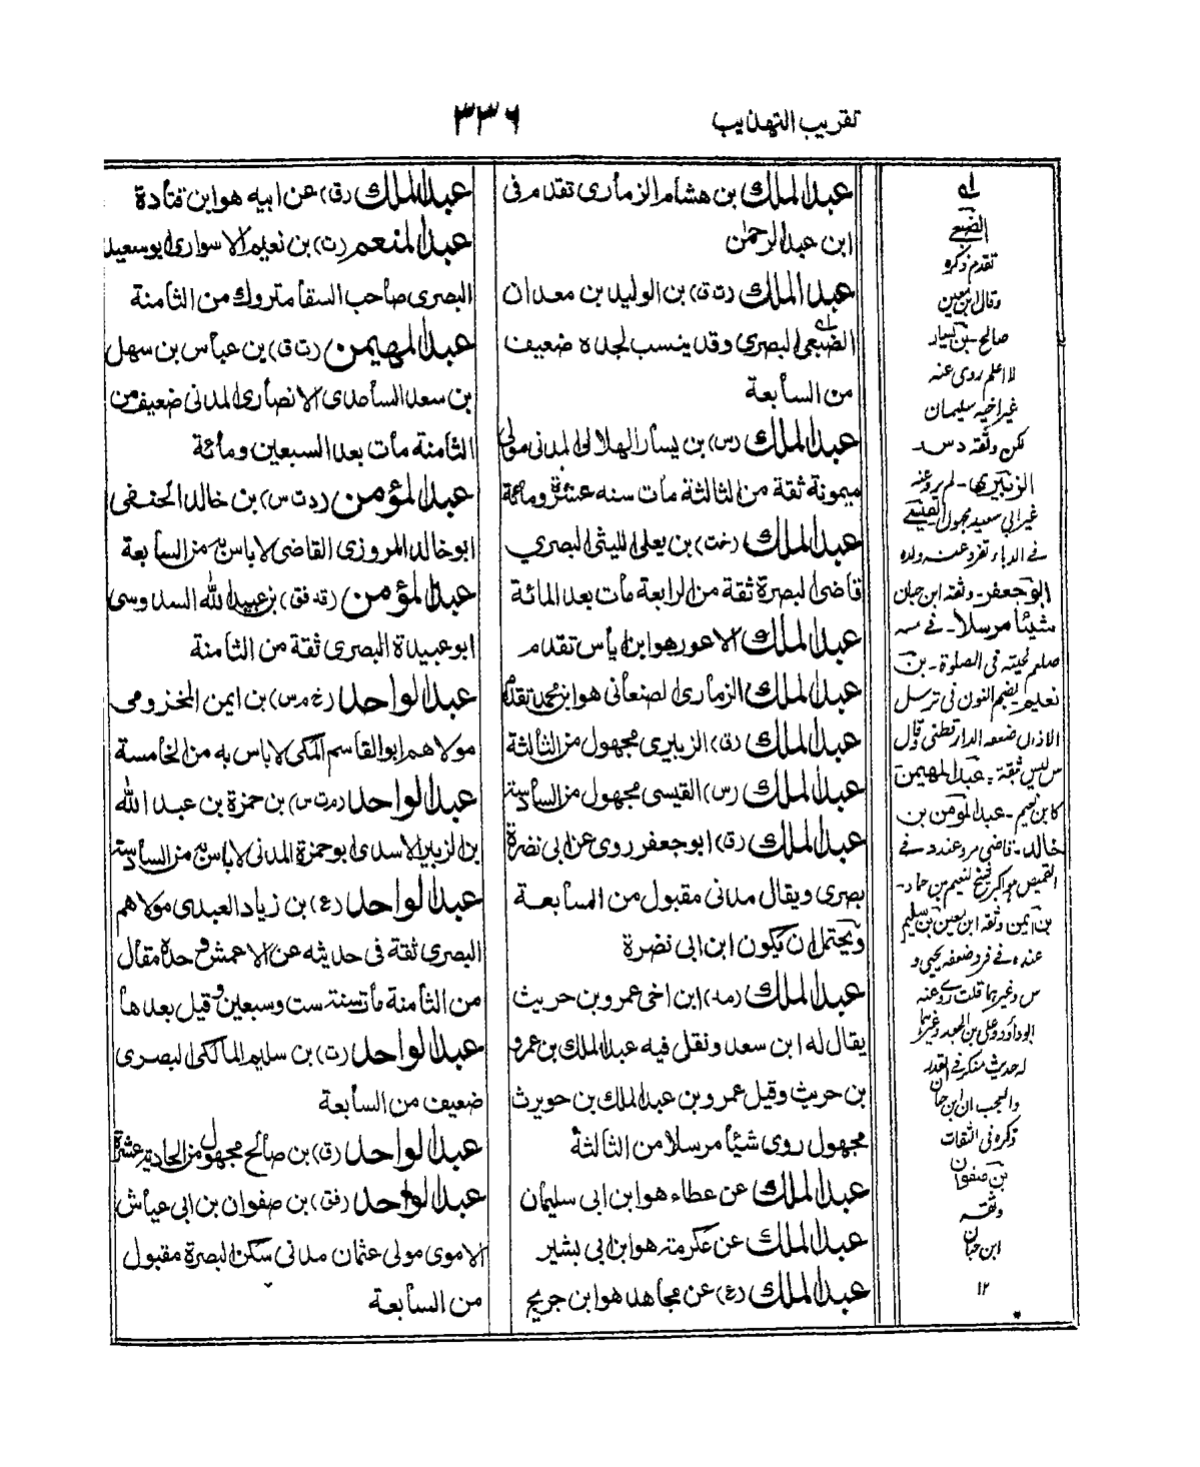 تقريب التهذيب
٣٣٦
عبدالملك بن هشام الزمارى تقدم فى
ابن عبدالرحمٰن
عبدالملك (ت ق) بن الوليد بن معدان
الضبعى البصرى وقد ينسب لجده ضعيف
من السابعة
عبدالملك (س) بن يسار الهلالى المدنى مولى
ميمونة ثقة من الثالثة مات سنه عشرة ومائة
عبدالملك (خت) بن يعلى الليثى البصري
قاضى البصرة ثقة من الرابعة مات بعد المائة
عبدالملك الاعور هو ابن اياس تقدم
عبدالملك الزمارى الصنعانى هو ابن محمد تقدم
عبدالملك (ق) الزبيرى مجهول من الثالثة
عبدالملك (س) القيسى مجهول من السادسة
عبدالملك (ق) ابوجعفر روى عن ابى نضرة
بصرى ويقال مدنى مقبول من السابعة
ويحتمل ان يكون ابن ابى نضرة
عبدالملك (مد) ابن اخى عمرو بن حريث
يقال له ابن سعد ونقل فيه عبدالملك بن عمرو
بن حريث وقيل عمرو بن عبدالملك بن حويرث
مجهول روى شيئا مرسلا من الثالثة
عبدالملك عن عطاء هو ابن ابى سليمان
عبدالملك عن عكرمة هو ابن ابى بشير
عبدالملك (ع) عن مجاهد هو ابن جريج
عبدالملك (ق) عن ابيه هو ابن قتادة
عبدالمنعم (ت) بن نعيم الاسوارى ابوسعيد
البصرى صاحب السقا متروك من الثامنة
عبدالمهيمن (ت ق) بن عباس بن سهل
بن سعد الساعدى الانصارى المدنى ضعيف من
الثامنة مات بعد السبعين ومائة
عبدالمؤمن (د ت س) بن خالد الحنفى
ابوخالد المروزى القاضى لا باس به من السابعة
عبدالمؤمن (قد فق) بن عبيدالله السدوسى
ابوعبيدة البصرى ثقة من الثامنة
عبدالواحد (خ م س) بن ايمن المخزومى
مولاهم ابوالقاسم المكى لا باس به من الخامسة
عبدالواحد (م ت س) بن حمزة بن عبدالله
بن الزبير الاسدى ابوحمزة المدنى لا باس به من السادسة
عبدالواحد (ع) بن زياد العبدى مولاهم
البصرى ثقة فى حديثه عن الاعمش وحده مقال
من الثامنة مات سنة ست وسبعين وقيل بعدها
عبدالواحد (ت) بن سليم المالكى البصرى
ضعيف من السابعة
عبدالواحد (ق) بن صالح مجهول من الحادية عشرة
عبدالواحد (فق) بن صفوان بن ابى عياش
الاموى مولى عثمان مدنى سكن البصرة مقبول
من السابعة
له
الضبعى
تقدم ذكره
وقال ابن معين
صالح - بن يسار
لا اعلم روى عنه
غير اخيه سليمان
لكن وثقه د س
الزبيرى - لم يرو عنه
غير ابى سعيد مجهول القيسى
فى الدباء تفرد عنه ولده
ابوجعفر - وثقه ابن حبان
شيئا مرسلا - فى
صلعم لحيته فى الصلوة - بن
نعيم بضم النون فى ترسل
الاذان ضعفه الدارقطنى وقال
س ليس ثقة - عبدالمهيمن
عبدالمؤمن بن
خالد - قاضى مرو عندد فى
القميص
بن ايمن وثقه ابن معين بن سليم
عنده فى فرد ضعفه يحيى و
س وغيرهما قلت روى عنه
ابوداؤد وعلى بن الجعد وغيرهما
له حديث منكر فى القدر
والعجب ان ابن حبان
ذكره فى الثقات
بن صفوان
وثقه
ابن حبان
١٢